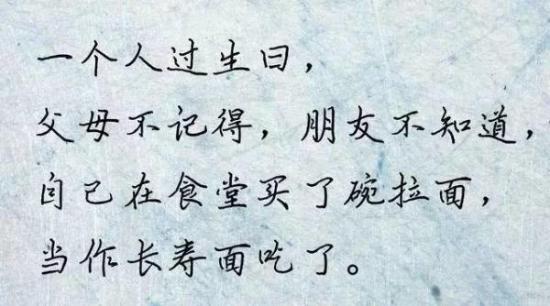 一个人过生日，
父母不记得，朋友不知道，
自己在食堂买了碗拉面，
当作长寿面吃了。